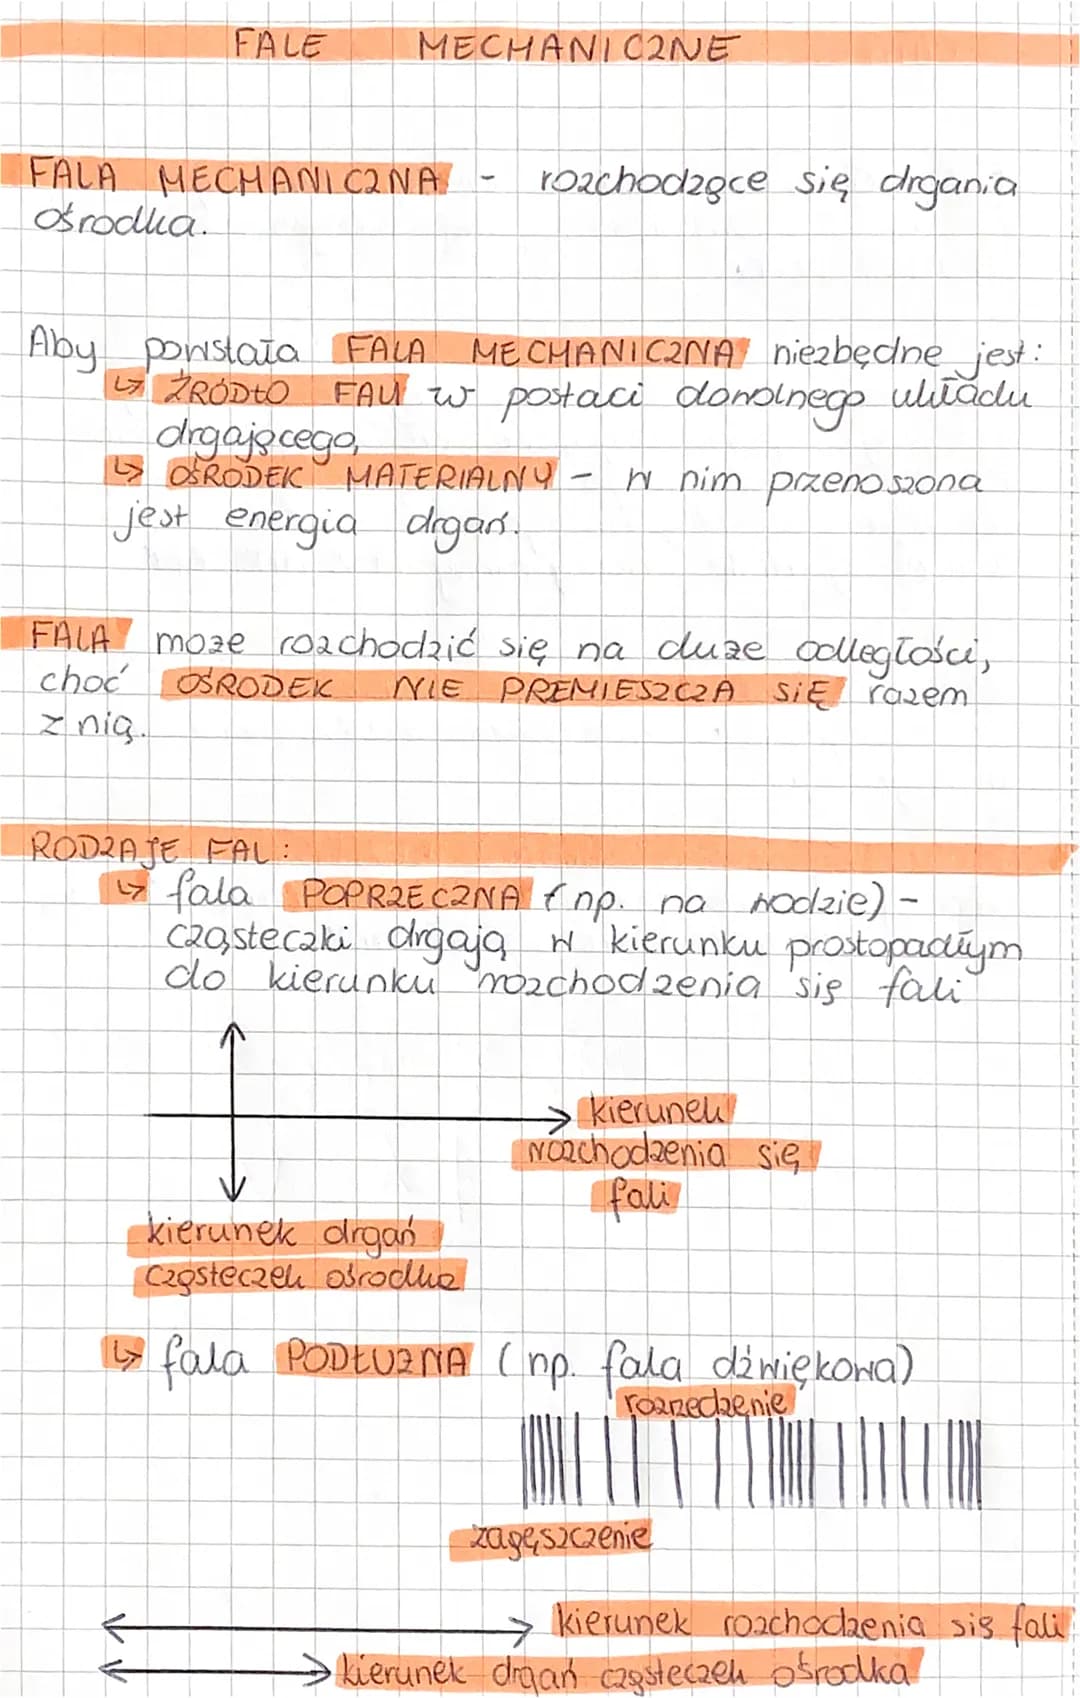 FALE MECHANICZNE
FALA MECHANICZNA - rozchodzące się drgania
ośrodka.
Aby powstała FALA MECHANICZNA niezbędne jest:
↳ ŹRÓDŁO FALI w postaci dowolnego układu
drgającego,
↳ OŚRODEK MATERIALNY - w nim przenoszona
jest energia drgań.
FALA może rozchodzić się na duże odległości,
choć OŚRODEK NIE PREMIESZCZA SIĘ razem
z nią.
RODZAJE FAL:
↳ fala POPRZECZNA (np. na wodzie) -
cząsteczki drgają w kierunku prostopadłym
do kierunku rozchodzenia się fali
kierunek
rozchodzenia się
fali
kierunek drgań
cząsteczek ośrodka
↳ fala PODŁUŻNA (np. fala dźwiękowa)
rozrzedzenie
zagęszczenie
kierunek rozchodzenia się fali
kierunek drgań cząsteczek ośrodka